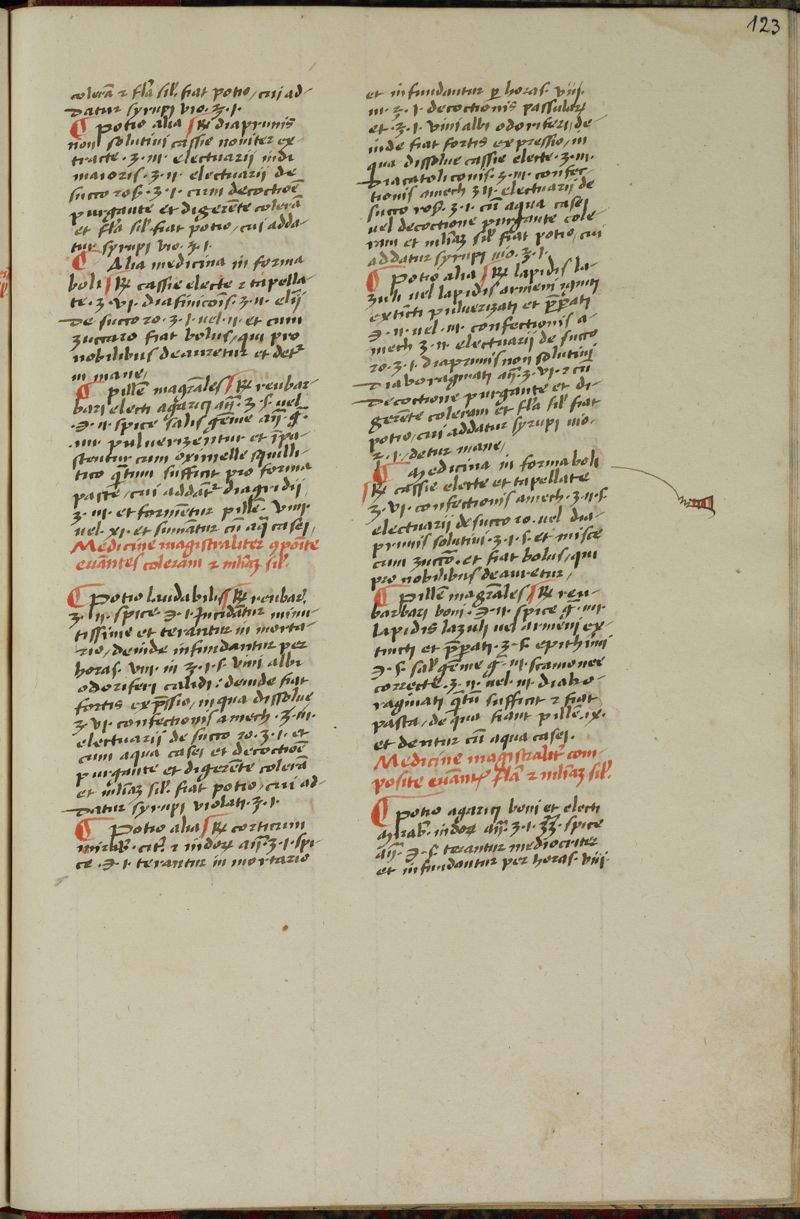 123
colerā ⁊ fla sil' fiat potio, cui ad-
datur syrupi vio. ʒ. 1.
Potio alia ℞ diaprunis
non solutivi cassie noviter ex-
tracte. ʒ. iii. electuarii indi
maioris. ʒ. ii. electuarii de
succo ros. ʒ. 1. cum decoctoē
purgante et digerēte colerā
et fla sil' fiat potio, cui adda-
tur syrupi vio. ʒ. 1.
Alia medicina in forma
boli ℞ cassie electe ⁊ tapella-
te. ʒ. vi. diafiniconis. ʒ. ii. elrii
de succo ro. ʒ. 1. vel. ii. et cum
zuccaro fiat bolus, qui pro
nobilibus deauretur et detr
in mane,
Pille magrales ℞ reubar-
bari electi agarici an. ʒ. s. vel
.Э. ii. spice salis gēme an. g.
.iiii. pulverizentur et īpa-
stentur cum oximelle squilli-
tico qtum sufficit pro forma
paste, cui addatr diagridii
ʒ. iii. et formētur pille. viiii.
vel. xi. et sumātur cū aq casei,
Medicine magistraliter qpoite
evantes coleram ⁊ mliaʒ sil'.
Potio laudabilis ℞ reubar.
ʒ. ii. spice Э. 1. Incidātur minu-
tissime et terantur in morta-
rio, deinde infundantur per
horas. viii. in ʒ. 1. s. vini albi
odoriferi calidi: deinde fiat
fortis expssio, in qua dissolve
ʒ. vi. confectionis amech. ʒ. iii.
electuarii de succo ro. ʒ. 1. et
cum aqua casei et decoctoē
purgante et digerēte colerā
et mliaʒ sil'. fiat potio, cui ad-
datur syrupi violati. ʒ. 1.
Potio alia ℞ corticum
mirab. cit. ⁊ indoꝝ an. ʒ. 1. spi-
ce. Э. 1. terantur in mortario
et infundantur p horas. viii.
in. ʒ. 1. decoctionis passulaꝝ
et. ʒ. 1. vini albi odoriferi, de-
inde fiat fortis expressio, in
qua dissolve cassie elette. ʒ. iii.
diacatoliconis. ʒ. iii. confec-
tionis amech ʒ ii. electuarii de
succo ros. ʒ. 1. cū aqua casei
vel decoctione purgante cole-
ram et mliaʒ sil' fiat potio, cui
addatur syrupi vio. ʒ. 1.
Potio alia ℞ lapidis la-
zuli vel lapidis armeni igniti
extincti pulverizati et ppati
Э. ii. vel. iii. confectionis a-
mech ʒ. ii. electuarii de succo
ro. ʒ. 1. diaprunis non solutivi
diaboraginati an. ʒ. vi. ⁊ cū
decoctione purgante et di-
gerēte coleram et fla sil' fiat
potio, cui addatur syrupi vio.
ʒ. 1. detur mane,
Medicina in forma boli
℞ cassie elette et tapellate
ʒ. vi. confectionis amech. ʒ. ii. s.
electuarii de succo ro. vel dia-
prunis solutivi. ʒ. 1. s. et misce
cum zucco. et fiat bolus, qui
pro nobilibus deauretur,
Pille magrales ℞ reu-
barbari boni. Э. ii. spice g. iii.
lapidis lazuli vel armeni ex-
tincti et ppati. ʒ. s. epithimi
Э. s. sal' gēme g. iii. scamonee
correcte. ʒ. ii. vel. iii. diabo-
raginati qtū sufficit ⁊ fiat
pasta, de qua fiant pille. ix.
et dentur cū aqua casei.
Medicine magistralitr com-
posite evant fla ⁊ mliaʒ sil'.
Potio agarici boni et electi
mirab. indoꝝ an. ʒ. 1. spice
an. Э. s. terantur mediocriter
et infundantur per horas. viii.